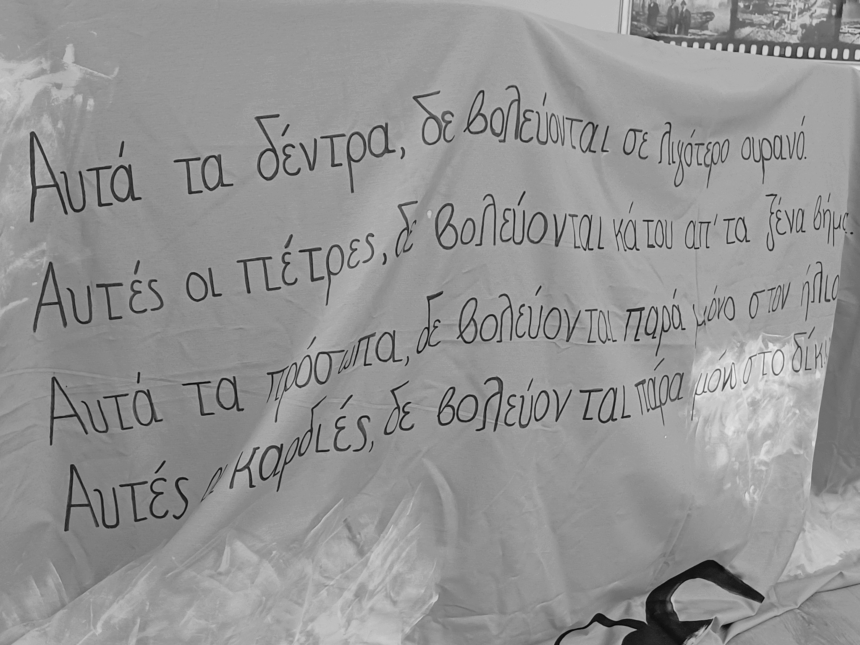 Αυτά τα δέντρα, δε βολεύονται σε λιγότερο ουρανό.
Αυτές οι πέτρες, δε βολεύονται κάτου απ' τα ξένα
Αυτά τα πρόσωπα, δε βολεύονται παρά μόνο στον ήλιο
Αυτές οι καρδιές, δε βολεύονται πάρα μόνο στο